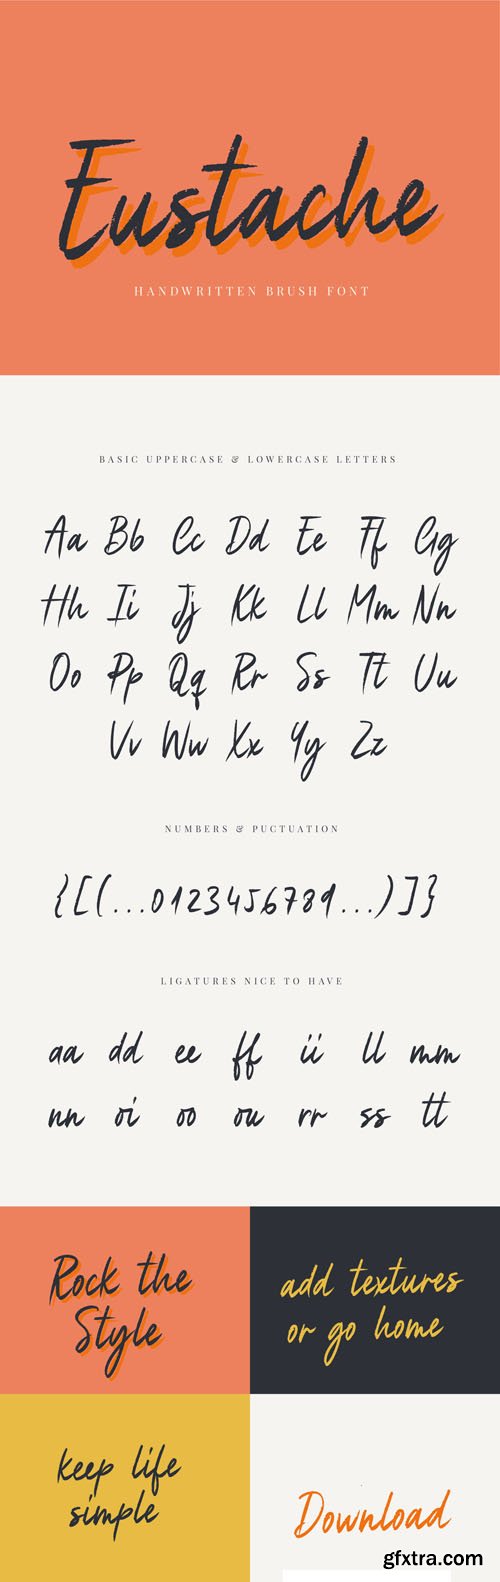 Eustache
HANDWRITTEN BRUSH FONT
BASIC UPPERCASE & LOWERCASE LETTERS
Aa Bb Cc Dd Ee Ff Gg
Hh Ii Jj Kk Ll Mm Nn
Oo Pp Qq Rr Ss Tt Uu
Vv Ww Xx Yy Zz
NUMBERS & PUCTUATION
{[(...0123456789...)]}
LIGATURES NICE TO HAVE
aa dd ee ff ii ll mm
nn oi oo ou rr ss tt
Rock the
Style
add textures
or go home
keep life
simple
Download
gfxtra.com